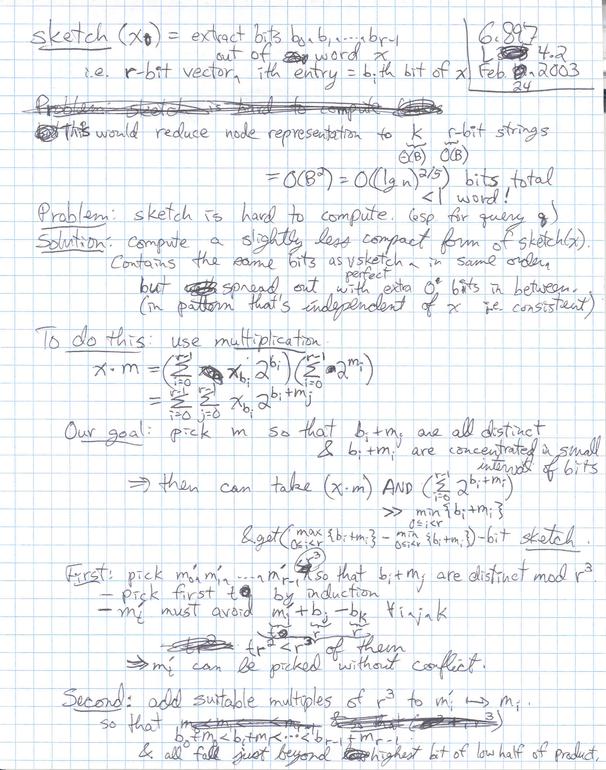 sketch (x) = extract bits b₀, b₁, ..., b_{r-1}
out of word x
i.e. r-bit vector, ith entry = b_i th bit of x
6.897
L 4.2
Feb. 24, 2003
Problem: sketch is hard to compute
This would reduce node representation to k r-bit strings
Θ(B) O(B)
= O(B²) = O((lg n)^{2/5}) bits total
< 1 word!
Problem: sketch is hard to compute. (esp. for query q)
Solution: compute a slightly less compact form of sketch(x).
Contains the same bits as perfect sketch, in same order,
but spread out with extra 0 bits in between.
(in pattern that's independent of x i.e. consistent)
To do this: use multiplication.
x·m = (∑_{i=0}^{r-1} x_{b_i} 2^{b_i}) (∑_{i=0}^{r-1} 2^{m_i})
= ∑_{i=0}^{r-1} ∑_{j=0}^{r-1} x_{b_i} 2^{b_i+m_j}
Our goal: pick m so that b_i+m_j are all distinct
& b_i+m_i are concentrated in small
interval of bits
⇒ then can take (x·m) AND (∑_{i=0}^{r-1} 2^{b_i+m_i})
>> min_{0≤i<r} {b_i+m_i}
& get (max_{0≤i<r} {b_i+m_i} - min_{0≤i<r} {b_i+m_i})-bit sketch.
First: pick m'₀, m'₁, ..., m'_{r-1} < r³ so that b_i+m_j are distinct mod r³.
- pick first t by induction
- m'_t must avoid m'_i + b_j - b_k ∀ i,j,k
t r r
tr² < r³ of them
⇒ m'_t can be picked without conflict.
Second: add suitable multiples of r³ to m'_i ↦ m_i.
so that
b₀+m₀ < b₁+m₁ < ... < b_{r-1}+m_{r-1}
& all fall just beyond highest bit of low half of product.